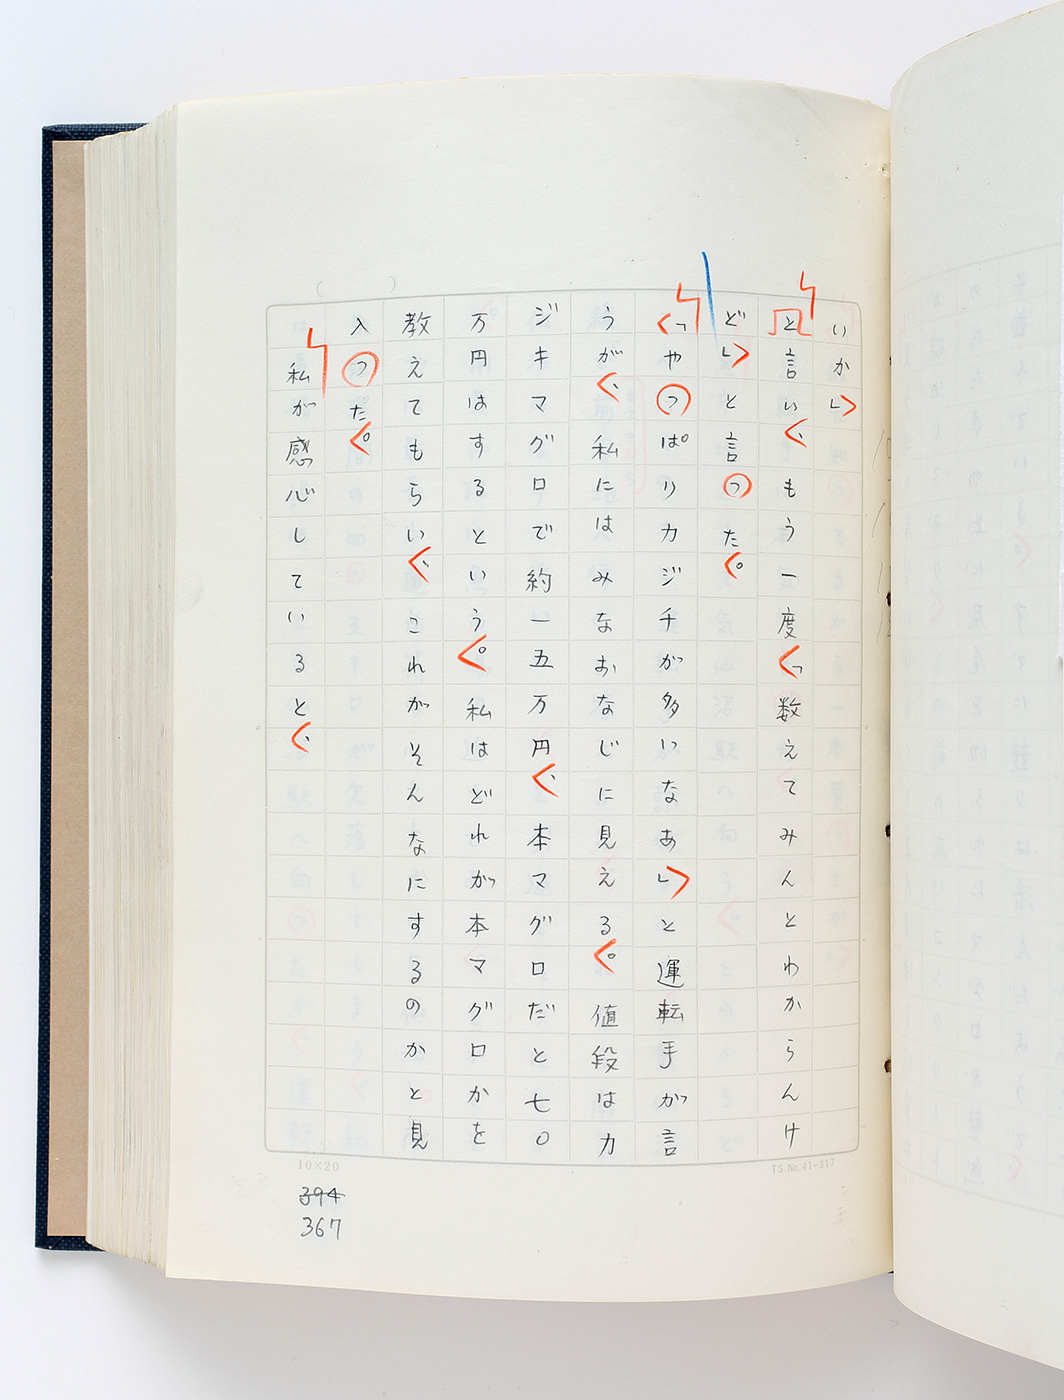 いか」
と言い、もう一度「数えてみんとわからんけ
ど」と言った。
「やっぱりカジチが多いなあ」と運転手が言
うが、私にはみなおなじに見える。値段はカ
ジキマグロで約一五万円、本マグロだと七〇
万円はするという。私はどれが本マグロかを
教えてもらい、これがそんなにするのかと見
入った。
私が感心していると、
10×20
394
367